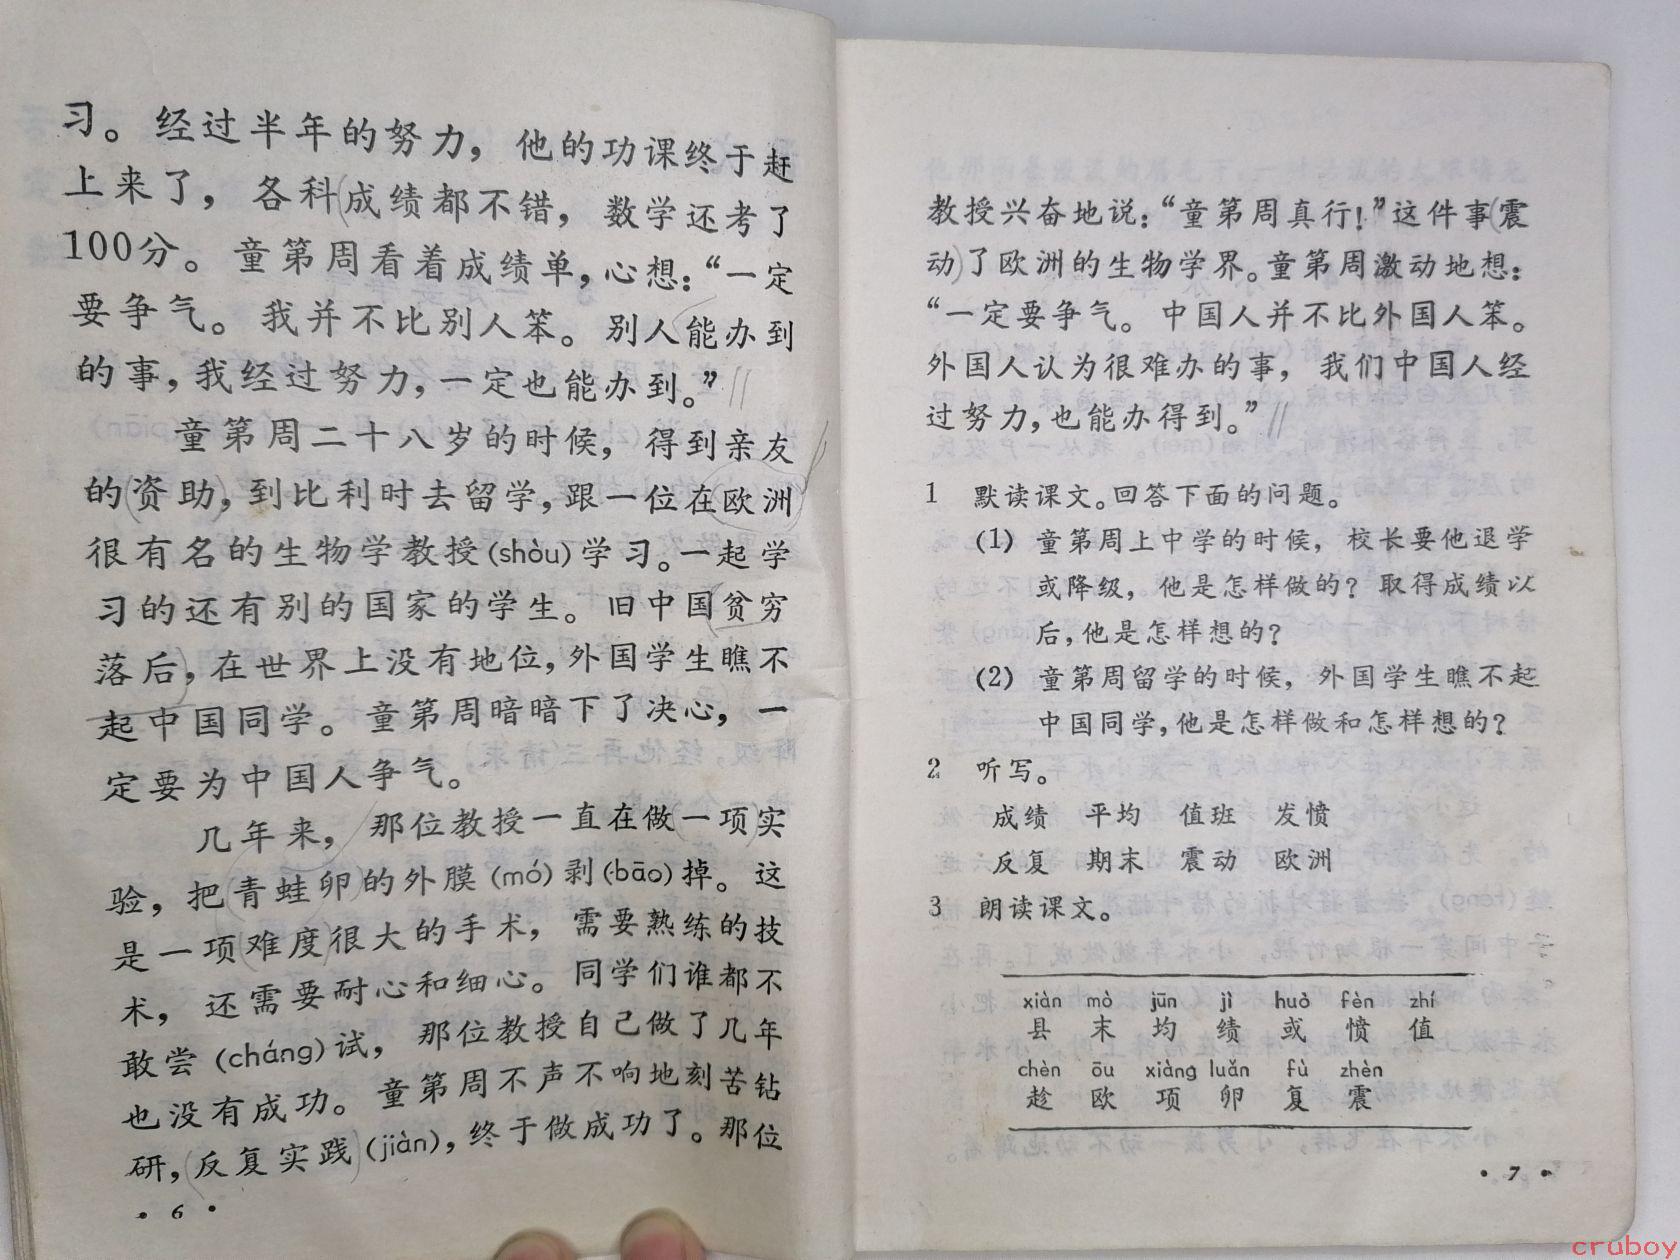 习。经过半年的努力，他的功课终于赶
上来了，各科成绩都不错，数学还考了
100分。童第周看着成绩单，心想：“一定
要争气。我并不比别人笨。别人能办到
的事，我经过努力，一定也能办到。”
童第周二十八岁的时候，得到亲友
的资助，到比利时去留学，跟一位在欧洲
很有名的生物学教授(shòu)学习。一起学
习的还有别的国家的学生。旧中国贫穷
落后，在世界上没有地位，外国学生瞧不
起中国同学。童第周暗暗下了决心，一
定要为中国人争气。
几年来，那位教授一直在做一项实
验，把青蛙卵的外膜(mó)剥(bāo)掉。这
是一项难度很大的手术，需要熟练的技
术，还需要耐心和细心。同学们谁都不
敢尝(cháng)试，那位教授自己做了几年
也没有成功。童第周不声不响地刻苦钻
研，反复实践(jiàn)，终于做成功了。那位
·6·
教授兴奋地说：“童第周真行！”这件事震
动了欧洲的生物学界。童第周激动地想：
“一定要争气。中国人并不比外国人笨。
外国人认为很难办的事，我们中国人经
过努力，也能办得到。”
1 默读课文。回答下面的问题。
(1) 童第周上中学的时候，校长要他退学
或降级，他是怎样做的？取得成绩以
后，他是怎样想的？
(2) 童第周留学的时候，外国学生瞧不起
中国同学，他是怎样做和怎样想的？
2 听写。
成绩 平均 值班 发愤
反复 期末 震动 欧洲
3 朗读课文。
xiàn mò jūn jì huò fèn zhí
县 末 均 绩 或 愤 值
chèn ōu xiàng luǎn fù zhèn
趁 欧 项 卵 复 震
·7·
cruboy